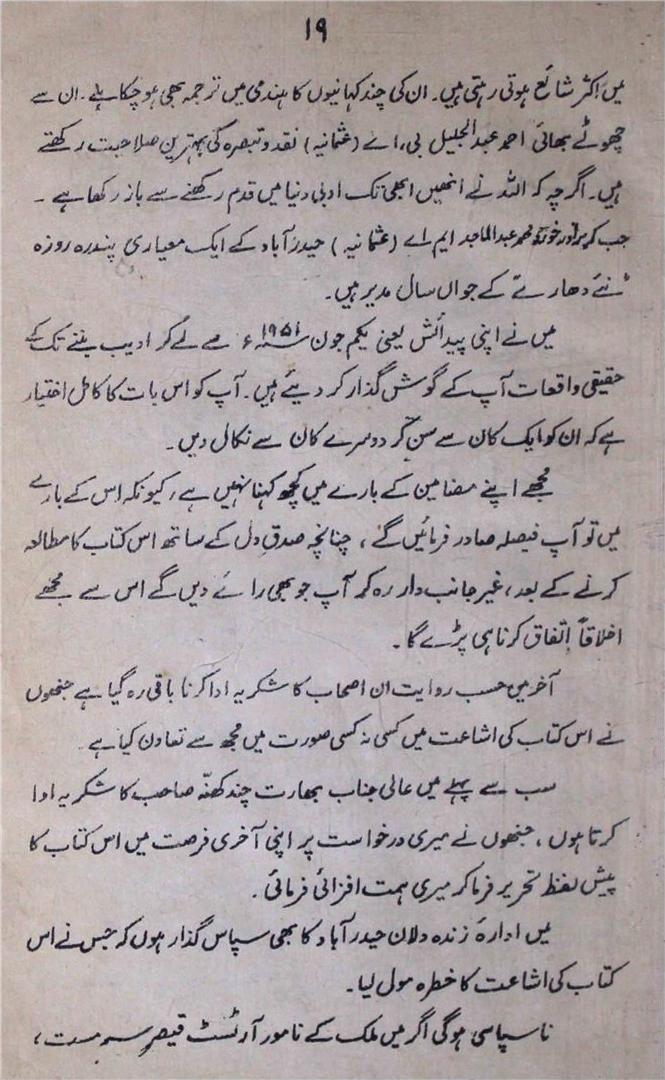 ۱۹
میں اکثر شائع ہوتی رہتی ہیں۔ ان کی چند کہانیوں کا ہندمی میں ترجمہ بھی ہو چکا ہے۔ ان سے
چھوٹے بھائی احمد عبدالجلیل بی، اے (عثمانیہ) نقد و تبصرہ کی بہترین صلاحیت رکھتے
ہیں۔ اگرچہ کہ اللہ نے انھیں ابھی تک ادبی دنیا میں قدم رکھنے سے باز رکھا ہے ۔
جب کہ برادر خورد محمد عبدالماجد ایم اے (عثمانیہ) حیدرآباد کے ایک معیاری پندرہ روزہ
"نئے دھارے" کے جواں سال مدیر ہیں۔
میں نے اپنی پیدائش یعنی یکم جون ۱۹۵۱ء سے لے کر ادیب بننے تک کے
حقیقی واقعات آپ کے گوش گذار کر دیئے ہیں۔ آپ کو اس بات کا کامل اختیار
ہے کہ ان کو ایک کان سے سن کر دوسرے کان سے نکال دیں۔
مجھے اپنے مضامین کے بارے میں کچھ کہنا نہیں ہے، کیونکہ اس کے بارے
میں تو آپ فیصلہ صادر فرمائیں گے، چنانچہ صدقِ دل کے ساتھ اس کتاب کا مطالعہ
کرنے کے بعد، غیر جانب دار رہ کر آپ جو بھی رائے دیں گے اس سے مجھے
اخلاقاً اتفاق کرنا ہی پڑے گا۔
آخر میں حسب روایت ان اصحاب کا شکریہ ادا کرنا باقی رہ گیا ہے جنھوں
نے اس کتاب کی اشاعت میں کسی نہ کسی صورت میں مجھ سے تعاون کیا ہے۔
سب سے پہلے میں عالی جناب بھارت چند کھنّہ صاحب کا شکریہ ادا
کرتا ہوں، جنھوں نے میری درخواست پر اپنی آخری فرصت میں اس کتاب کا
پیش لفظ تحریر فرما کر میری ہمت افزائی فرمائی۔
میں ادارۂ زندہ دلان حیدرآباد کا بھی سپاس گذار ہوں کہ جس نے اس
کتاب کی اشاعت کا خطرہ مول لیا۔
ناسپاسی ہوگی اگر میں ملک کے نامور آرٹسٹ قیصر سرمست،